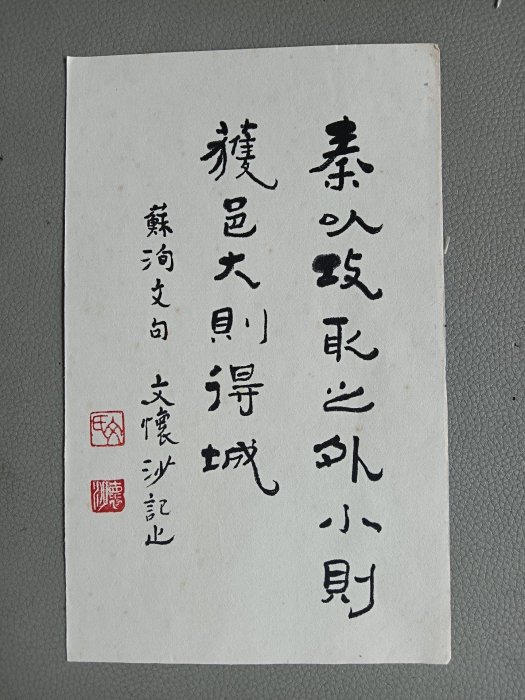 秦以攻取之外小則
獲邑大則得城
蘇洵文句 文懷沙記之
文氏
懷沙